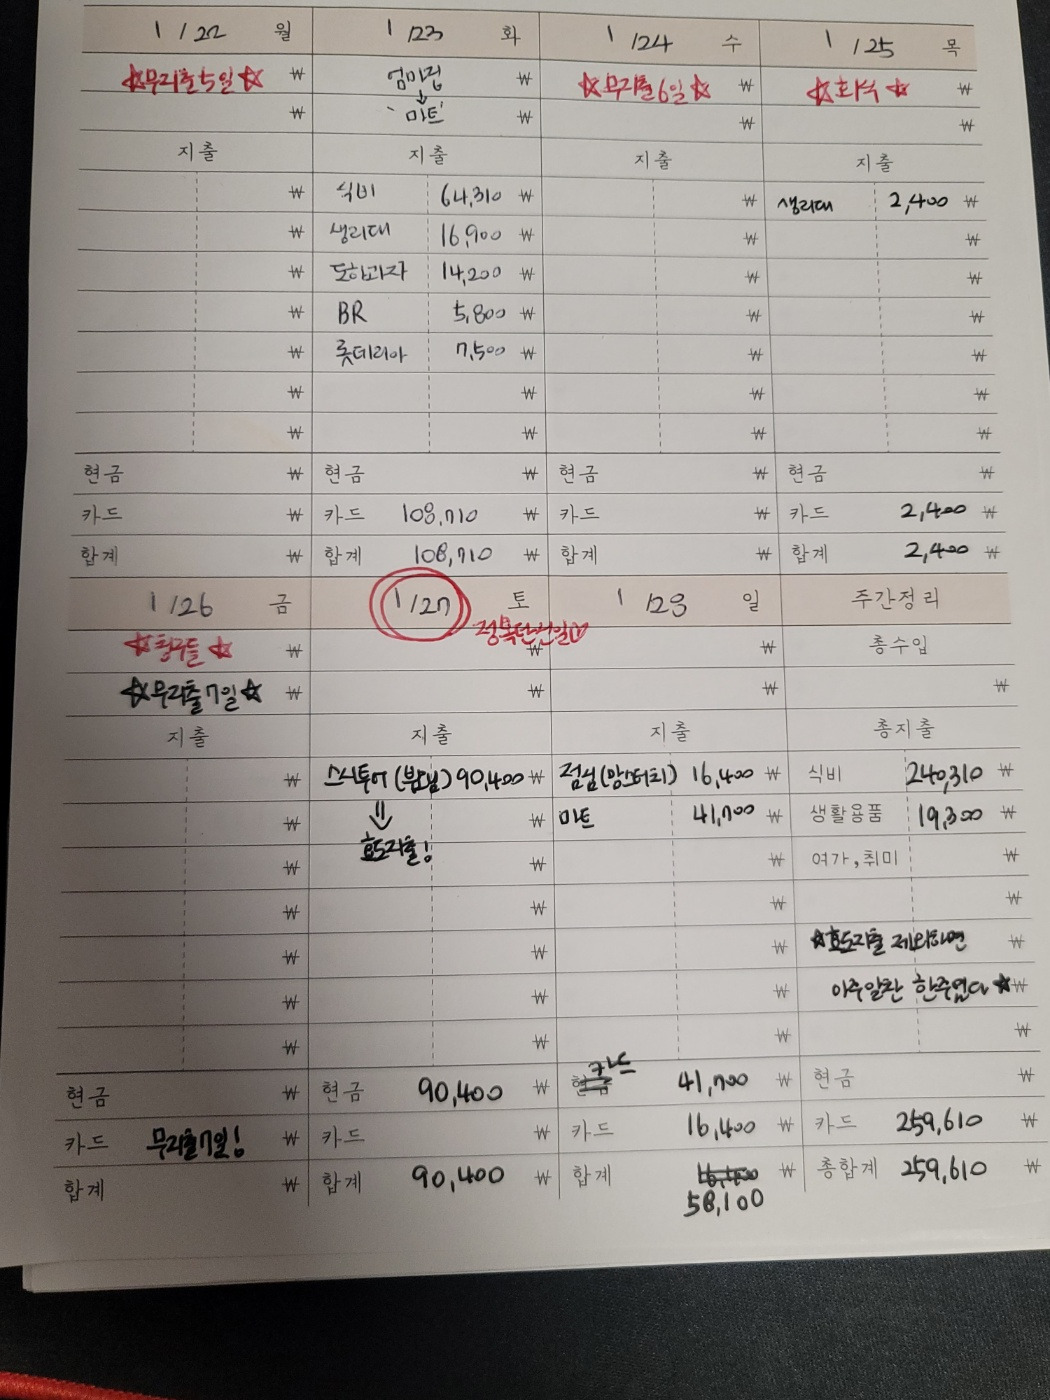 1 / 22 월
☆무지출5일☆ ₩
₩
지출
₩
₩
₩
₩
₩
₩
₩
현금 ₩
카드 ₩
합계 ₩
1 / 23 화
엄마집 ₩
↓
마트 ₩
지출
식비 64,310 ₩
생리대 16,900 ₩
도하과자 14,200 ₩
BR 5,800 ₩
롯데리아 7,500 ₩
₩
₩
현금 ₩
카드 108,710 ₩
합계 108,710 ₩
1 / 24 수
☆무지출6일☆ ₩
₩
지출
₩
₩
₩
₩
₩
₩
₩
현금 ₩
카드 ₩
합계 ₩
1 / 25 목
☆회식☆ ₩
₩
지출
생리대 2,400 ₩
₩
₩
₩
₩
₩
₩
현금 ₩
카드 2,400 ₩
합계 2,400 ₩
1 / 26 금
₩
☆무지출7일☆ ₩
지출
₩
₩
₩
₩
₩
₩
₩
현금 ₩
카드 무지출7일! ₩
합계 ₩
1 / 27 토
₩
₩
지출
스시투어 (밥님) 90,400 ₩
⇓ ₩
효도지출! ₩
₩
₩
₩
₩
현금 90,400 ₩
카드 ₩
합계 90,400 ₩
1 / 28 일
₩
₩
지출
점심(맘스터치) 16,400 ₩
마트 41,700 ₩
₩
₩
₩
₩
₩
카드 41,700 ₩
카드 16,400 ₩
합계 ₩
58,100
주간정리
총수입
₩
총지출
식비 240,310 ₩
생활용품 19,300 ₩
여가,취미 ₩
₩
★효도지출 제외하면 ₩
아주알찬 한주였다★ ₩
₩
현금 ₩
카드 259,610 ₩
총합계 259,610 ₩